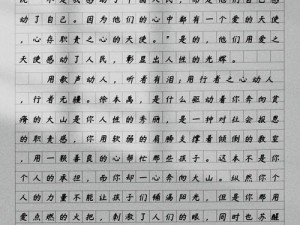 动了自己。因为他们的心中都有一个“爱的天使
，心存职责之心的天使。”是的，他们用爱之
天使感动了人民，彰显出人性的光辉。
用歌声动人，听者有泪；用行者之心动人
，行者无疆。徐本禹，是什么驱动着你奔向贫
瘠的大山是你人性的秀丽，是一种对社会报恩
的职责感，你用软弱的肩膀支撑着倾倒的教室
，用一颗善良的心帮忙那些孩子。这本不是你
个人的承担，而你却一心奔向大山。纵然你个
人的力量不能让孩子们铺满阳光，但是你那用
爱点燃的火把，刺教了人们的眼，同时也苏醒